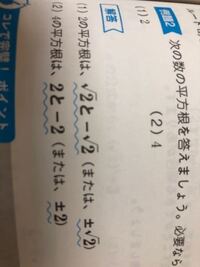 例題2 次の数の平方根を答えましょう。必要なら
(1) 2 (2) 4
解答
(1) 2の平方根は、√2と−√2（または、±√2）
(2) 4の平方根は、2と−2（または、±2）
ポイント